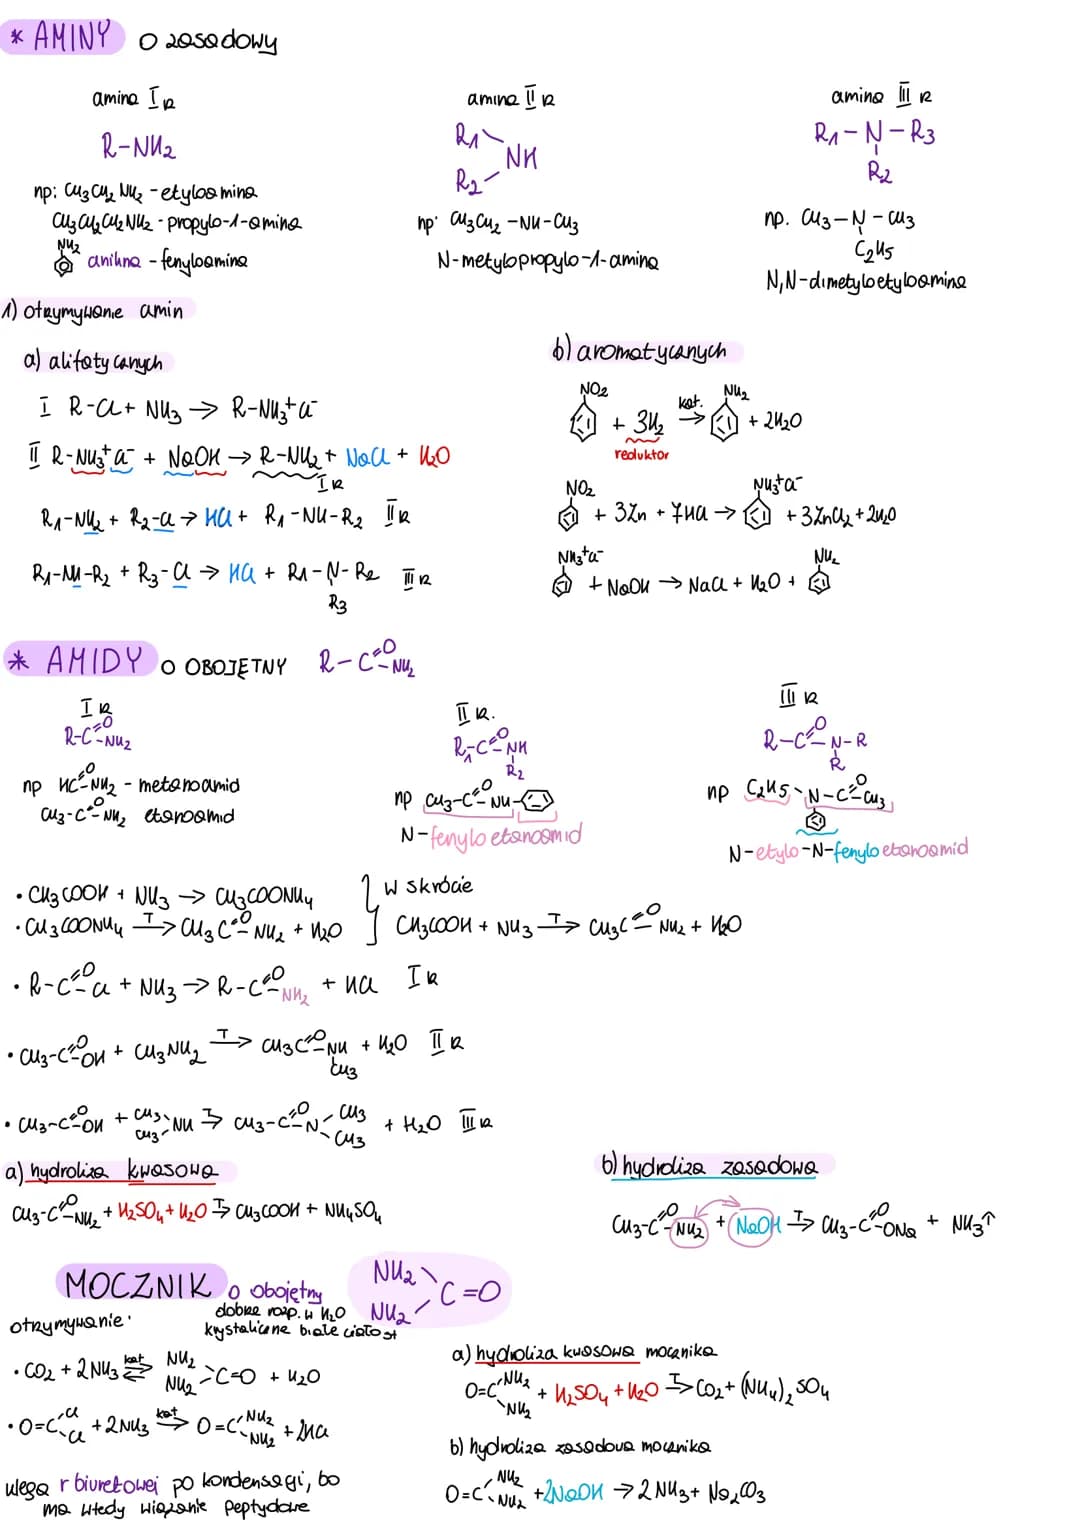 * AMINY O zasadowy
amina I R
R-NH2
np: CH3CH2NH2 - etyloamina
CH3CH2CH2NH2 - propylo-1-amina
NH2
anilina - fenyloamina
amina II R
R1
NH
R2
np. CH3CH2-NH-CH3
N-metylopropylo-1-amina
amina III R
R1-N-R3
R2
np. CH3-N-CH3
C2H5
N,N-dimetyloetyloamina
1) otrzymywanie amin
a) alifatycznych
I R-Cl + NH3 → R-NH3+Cl-
II R-NH3+Cl- + NaOH → R-NH2 + NaCl + H2O
I R
R1-NH2 + R2-Cl → HCl + R1-NH-R2 II R
R1-NH-R2 + R3-Cl → HCl + R1-N-R2 III R
R3
b) aromatycznych
NO2 kat. NH2
+ 3H2 → + 2H2O
reduktor
NO2 NH3+Cl-
+ 3Zn + 7HCl → + 3ZnCl2 + 2H2O
NH3+Cl- NH2
+ NaOH → NaCl + H2O +
* AMIDY O OBOJĘTNY R-C=O-NH2
I R
R-C=O-NH2
np HC=O-NH2 - metanoamid
CH3-C=O-NH2 etanoamid
II R.
R1-C=O-NH
R2
np CH3-C=O-NH-
N-fenyloetanoamid
III R
R-C=O-N-R
R
np C2H5-N-C=O-CH3
N-etylo-N-fenyloetanoamid
• CH3COOH + NH3 → CH3COONH4
• CH3COONH4 T→ CH3C=O-NH2 + H2O
} w skrócie
CH3COOH + NH3 T→ CH3C=O-NH2 + H2O
• R-C=O-Cl + NH3 → R-C=O-NH2 + HCl I R
• CH3-C=O-OH + CH3NH2 T→ CH3C=O-NH + H2O II R
CH3
• CH3-C=O-OH + CH3 CH3 NH T→ CH3-C=O-N CH3 CH3 + H2O III R
a) hydroliza kwasowa
CH3-C=O-NH2 + H2SO4 + H2O T→ CH3COOH + NH4SO4
b) hydroliza zasadowa
CH3-C=O-NH2 + NaOH T→ CH3-C=O-ONa + NH3↑
MOCZNIK O obojętny
NH2
C=O
NH2
dobrze rozp. w H2O
krystaliczne białe ciało st
otrzymywanie:
• CO2 + 2NH3 kat⇌ NH2 NH2 C=O + H2O
• O=C Cl Cl + 2NH3 kat→ O=C NH2 NH2 + 2HCl
ulega r biuretowej po kondensacji, bo
ma wtedy wiązanie peptydowe
a) hydroliza kwasowa mocznika
O=C NH2 NH2 + H2SO4 + H2O T→ CO2 + (NH4)2SO4
b) hydroliza zasadowa mocznika
O=C NH2 NH2 + 2NaOH → 2NH3 + Na2CO3